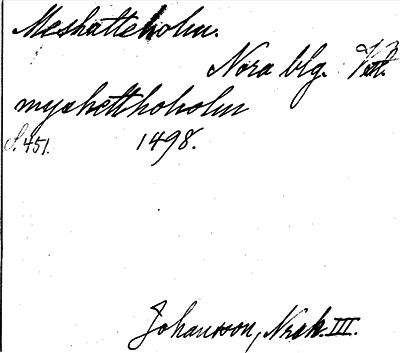 Meshatteholm.
Nora blg. Vstm.
myxhetthoholm
S. 451. 1498.
Johansson, Norak. III.